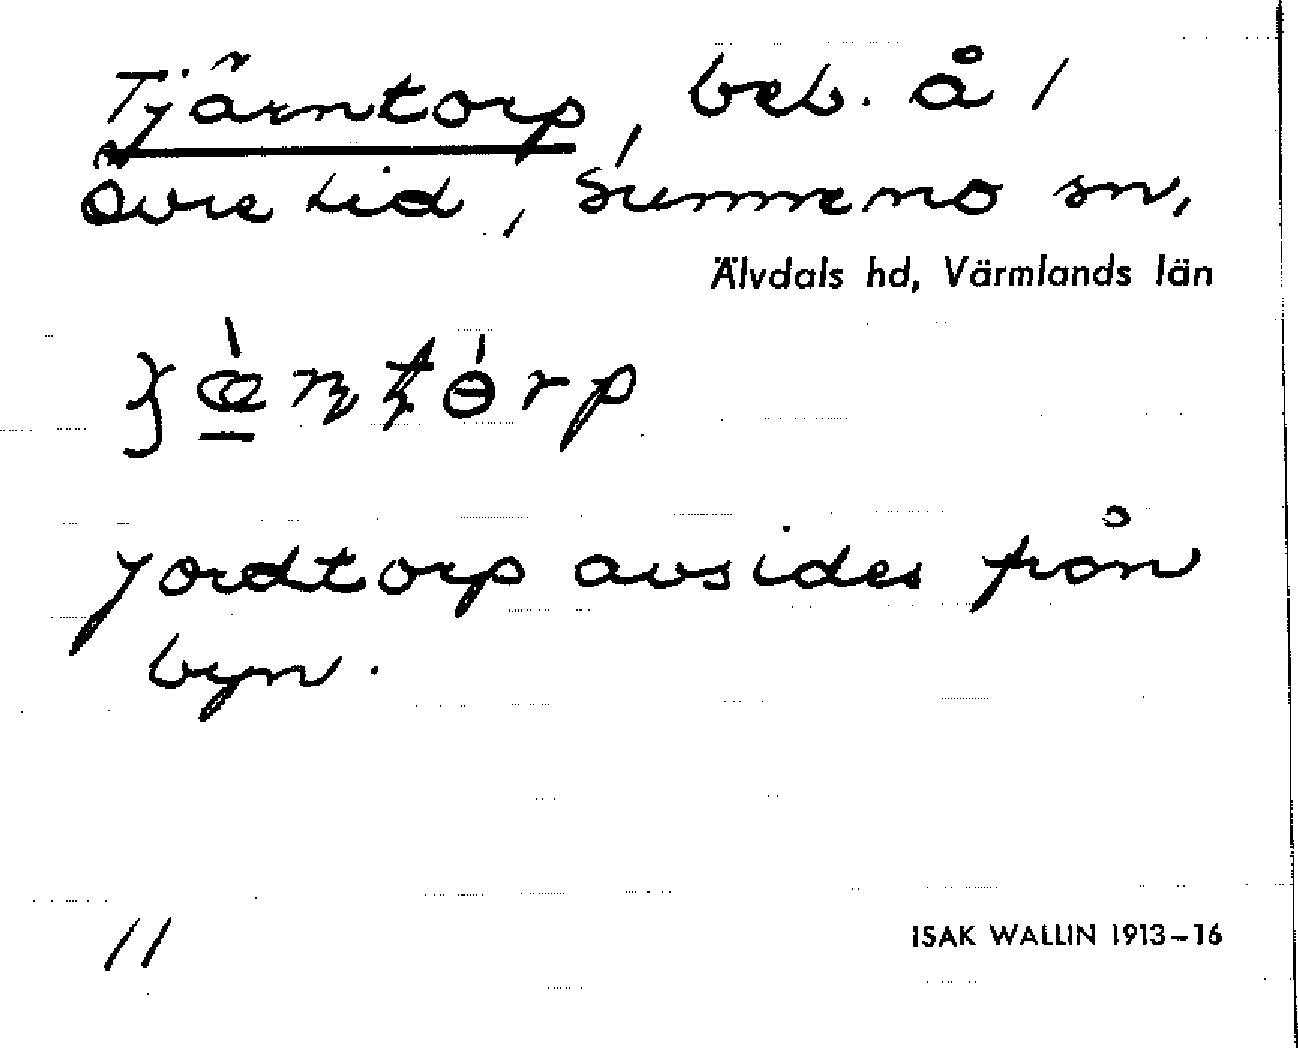 Tjärntorp, beb. å 1
Övre Lid, Sunnemo sn,
Älvdals hd, Värmlands län
Jordtorp avsides från
byn.
11
ISAK WALLIN 1913-16